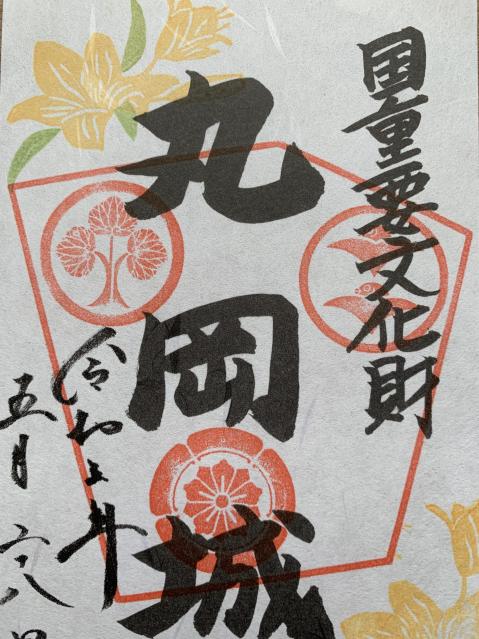 国重要文化財
丸岡城
令和五年
五月 八日